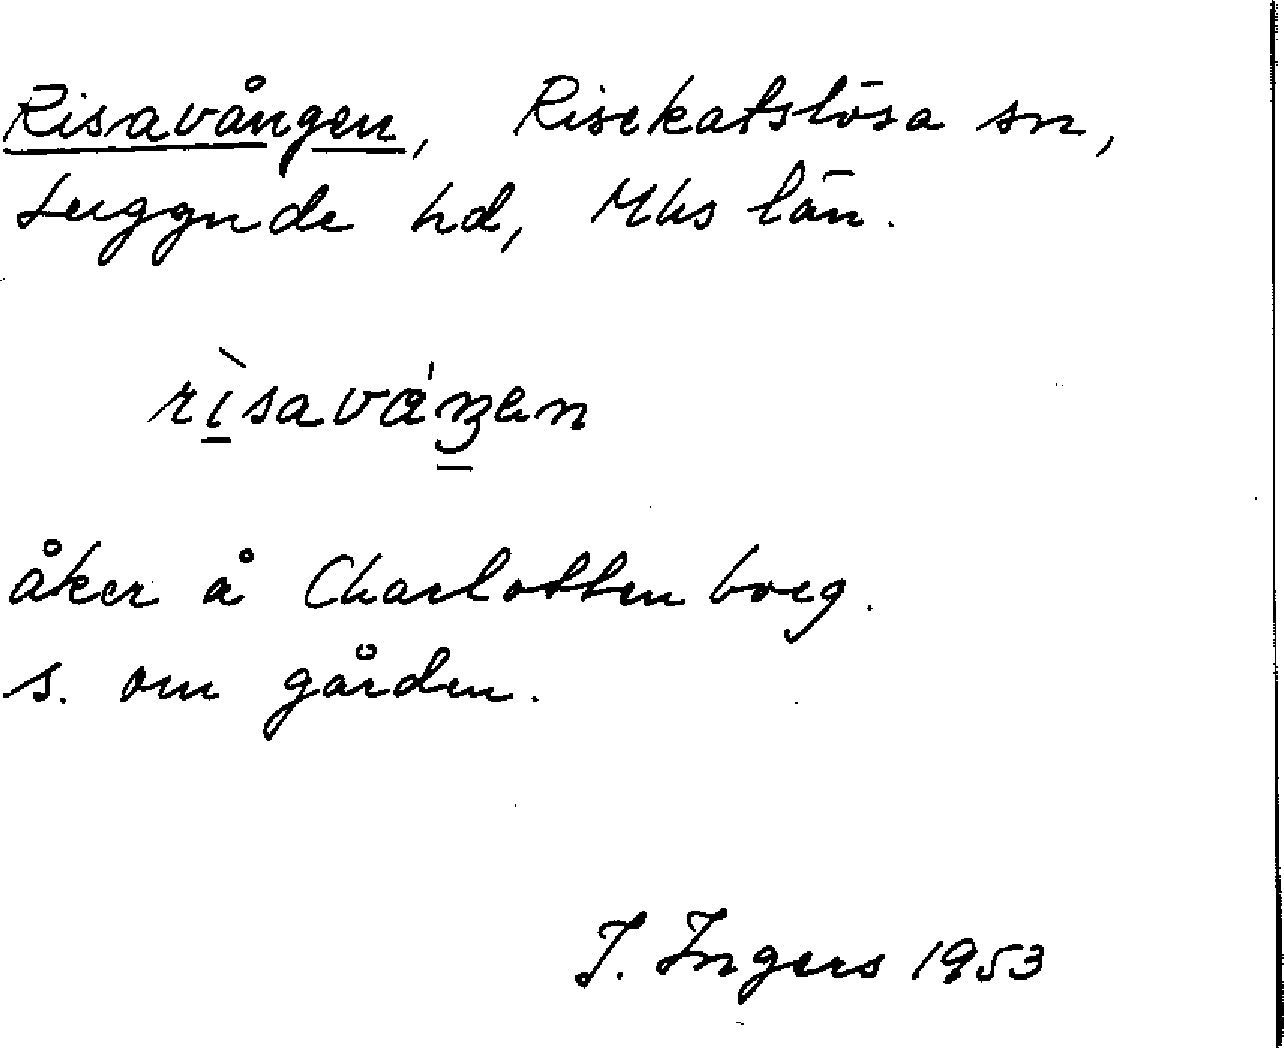 Risavången, Risekatslösa sn,
Luggude hd, Mhs län.
rìsavá​ŋen
åker å Charlottenborg.
s. om gården.
I. Ingers 1953